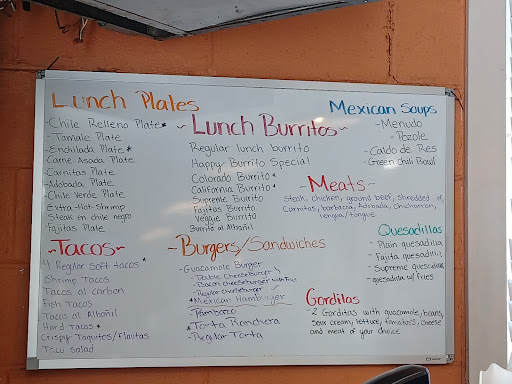 Lunch Plates
-Chile Relleno Plate*
-Tamale Plate
-Enchilada Plate*
Carne Asada Plate
Carnitas Plate
Adobada Plate
-Chile Verde Plate
Extra Hot Shrimp
Steak en chile negro
Fajitas Plate
~Lunch Burritos~
Regular lunch burrito
Happy Burrito Special
Colorado Burrito *
California Burrito *
Supreme Burrito
Fajitas Burrito
Veggie Burrito
Burrito al Albañil
Mexican Soups
-Menudo
-Pozole
-Caldo de Res
-Green Chili Bowl
-Meats-
Steak, chicken, ground beef, shredded
Carnitas, barbacoa, Adobada, Chicharron,
lengua/tongue
~Tacos~
4 Regular soft tacos *
Shrimp Tacos
Tacos al carbon
Fish Tacos
Tacos al Albañil
Hard Tacos *
Crispy Taquitos/Flautas
Taco salad
-Burgers/Sandwiches
-Guacamole Burger
-Double Cheeseburger
-Bacon cheeseburger with Fries
-Regular cheeseburger
*Mexican Hamburger
Pambazo
*Torta Ranchera
-Regular Torta
Quesadillas
- Plain quesadilla
- Fajita quesadilla
- Supreme quesadilla
-quesadilla w/ fries
Gorditas
-2 Gorditas with guacamole, beans,
sour cream, lettuce, tomatoes, cheese
and meat of your choice